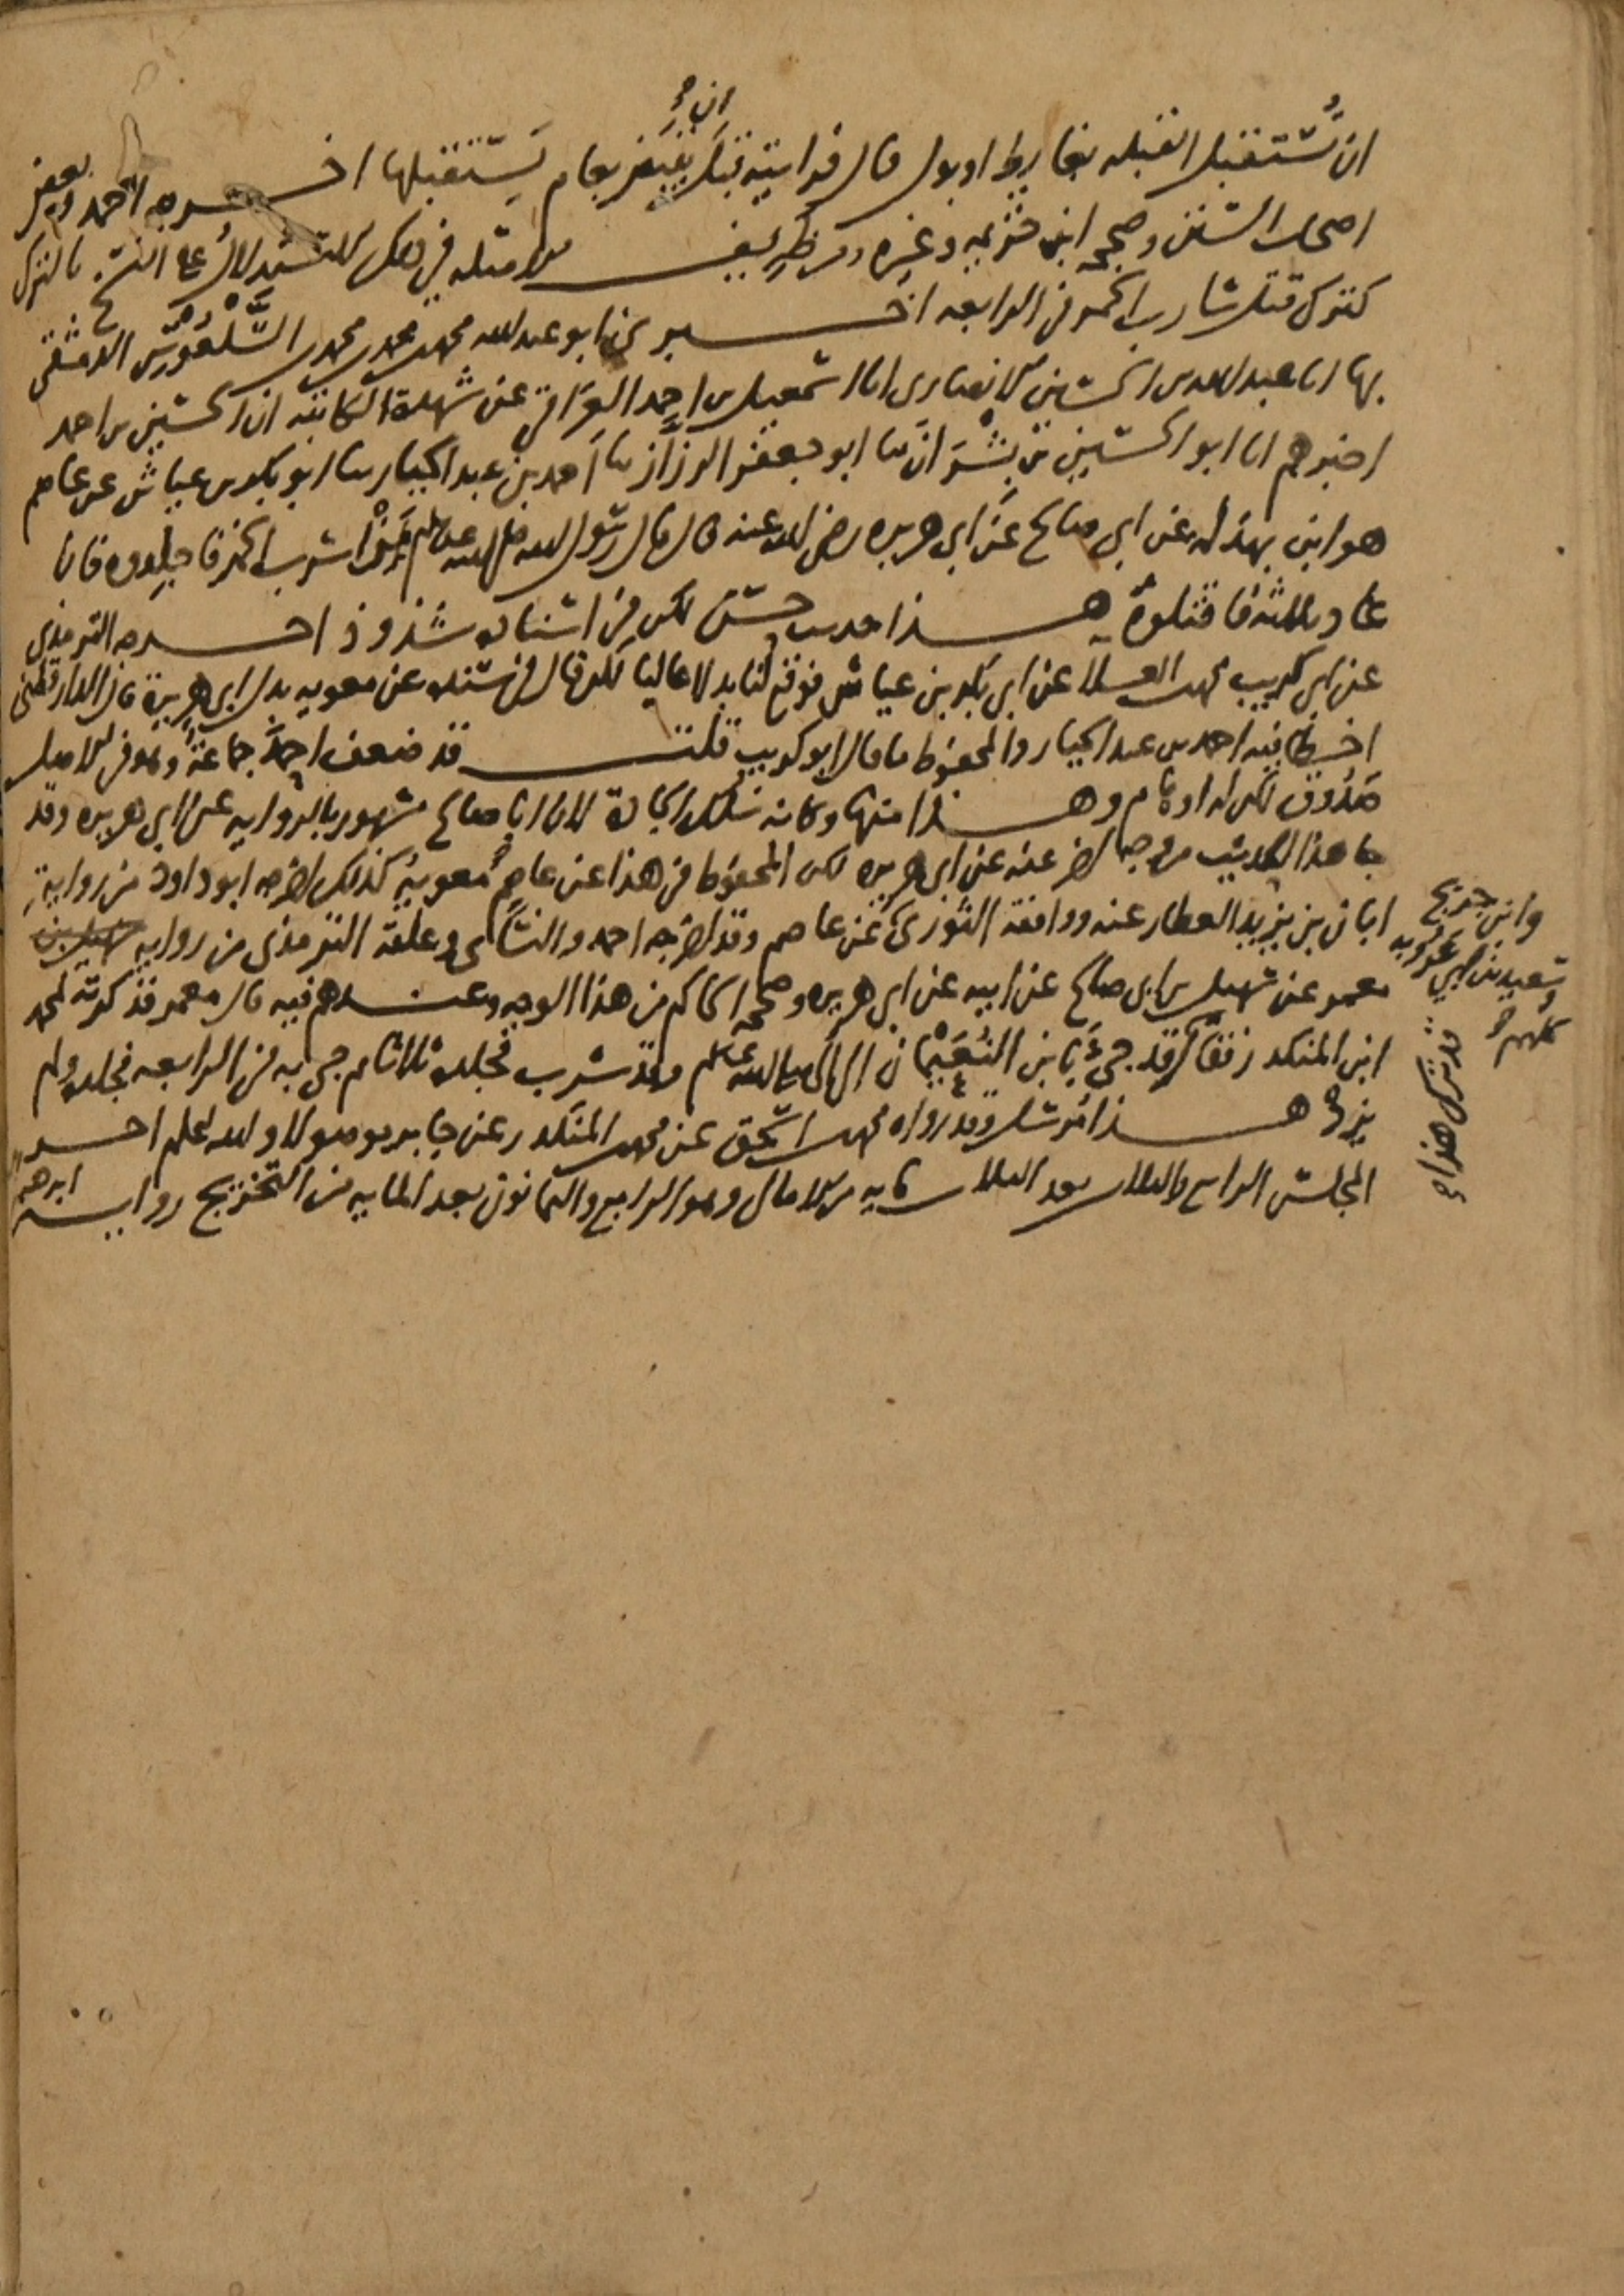 ان نستقبل القبله بغايط او بول قال فرايته قبل ان يقبض بعام يستقبلها اخرجه احمد وبعض
اصحاب السنن وصححه ابن خزيمه وغيره ومن ظريف الامثله في ذلك الاستدلال على النسخ بالترك
كترك قتل شارب الخمر في الرابعه اخبرني ابو عبد الله محمد بن محمد بن محمد السلعوس الدمشقي
بها انا عبد الله بن الحسين الانصاري انا اسمعيل بن احمد العراقي عن شهدة الكاتبه ان الحسين بن احمد
اخبرهم انا ابو الحسين بن بشران ثنا ابو جعفر الرزاز ثنا احمد بن عبد الجبار ثنا ابو بكر بن عياش عن عاصم
هو ابن بهدله عن ابي صالح عن ابي هريره رضي الله عنه قال قال رسول الله صلى الله عليه وسلم من شرب الخمر فاجلدوه فان
عاد الثالثه فاقتلوه هذا حديث حسن لكن في اسناده شذوذ اخرجه الترمذي
عن ابي كريب محمد بن العلا عن ابي بكر بن عياش فوقع لنا بدلا عاليا لكن قال في سنده عن معويه بدل ابي هريرة قال الدارقطني
اخطا فيه احمد بن عبد الجبار والمحفوظ ما قال ابو كريب قلت قد ضعف احمد جماعة وهو في الاصل
صدوق لكن له اوهام وهذا منها وكانه سلك الجادة لان ابا صالح مشهور بالروايه عن ابي هريره وقد
جا هذا الحديث من وجه اخر عنه عن ابي هريره لكن المحفوظ في هذا عن عاصم معوية كذلك اخرجه ابو داود من رواية
ابان بن يزيد العطار عنه ووافقه الثوري عن عاصم وقد اخرجه احمد والنسائي وعلقه الترمذي من روايه
معمر عن سهيل بن ابي صالح عن ابيه عن ابي هريره وصححه الحاكم من هذا الوجه وعندهم فيه قال معمر فذكرته لمحمد
ابن المنكدر فقال قد ترك هذا قد جيء بابن النعيمان الى النبي صلى الله عليه وسلم وقد شرب فجلده ثلاثا ثم جي به في الرابعه فجلده ولم
يزده هذا مرسل وقد رواه محمد بن اسحق عن محمد بن المنكدر عن جابر موصولا والله اعلم اخر
المجلس الرابع والثلاثين بعد الثلاث مايه من الامالي وهو الرابع والثمانون بعد المايه من التخريج روايه ابرهيم
وابن جريج
سعيد بن ابي عروبه
كلهم
قد ترك هذا